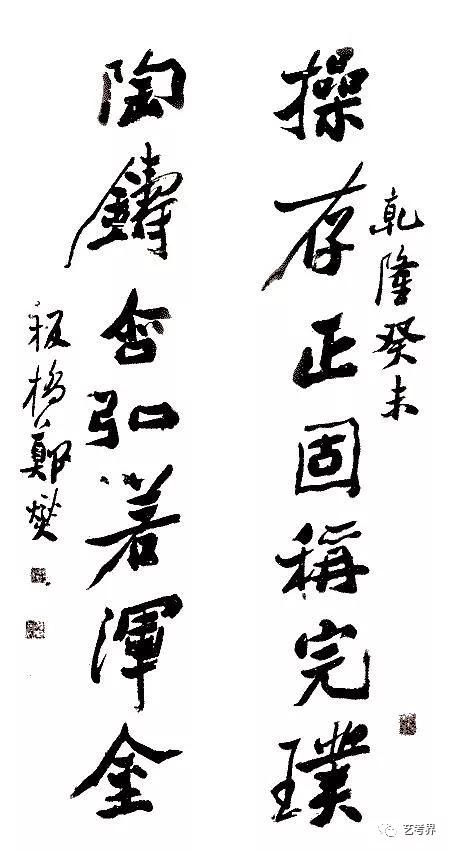 乾隆癸未
操存正固稱完璞
陶鑄含弘若渾金
板橋鄭燮
艺考界